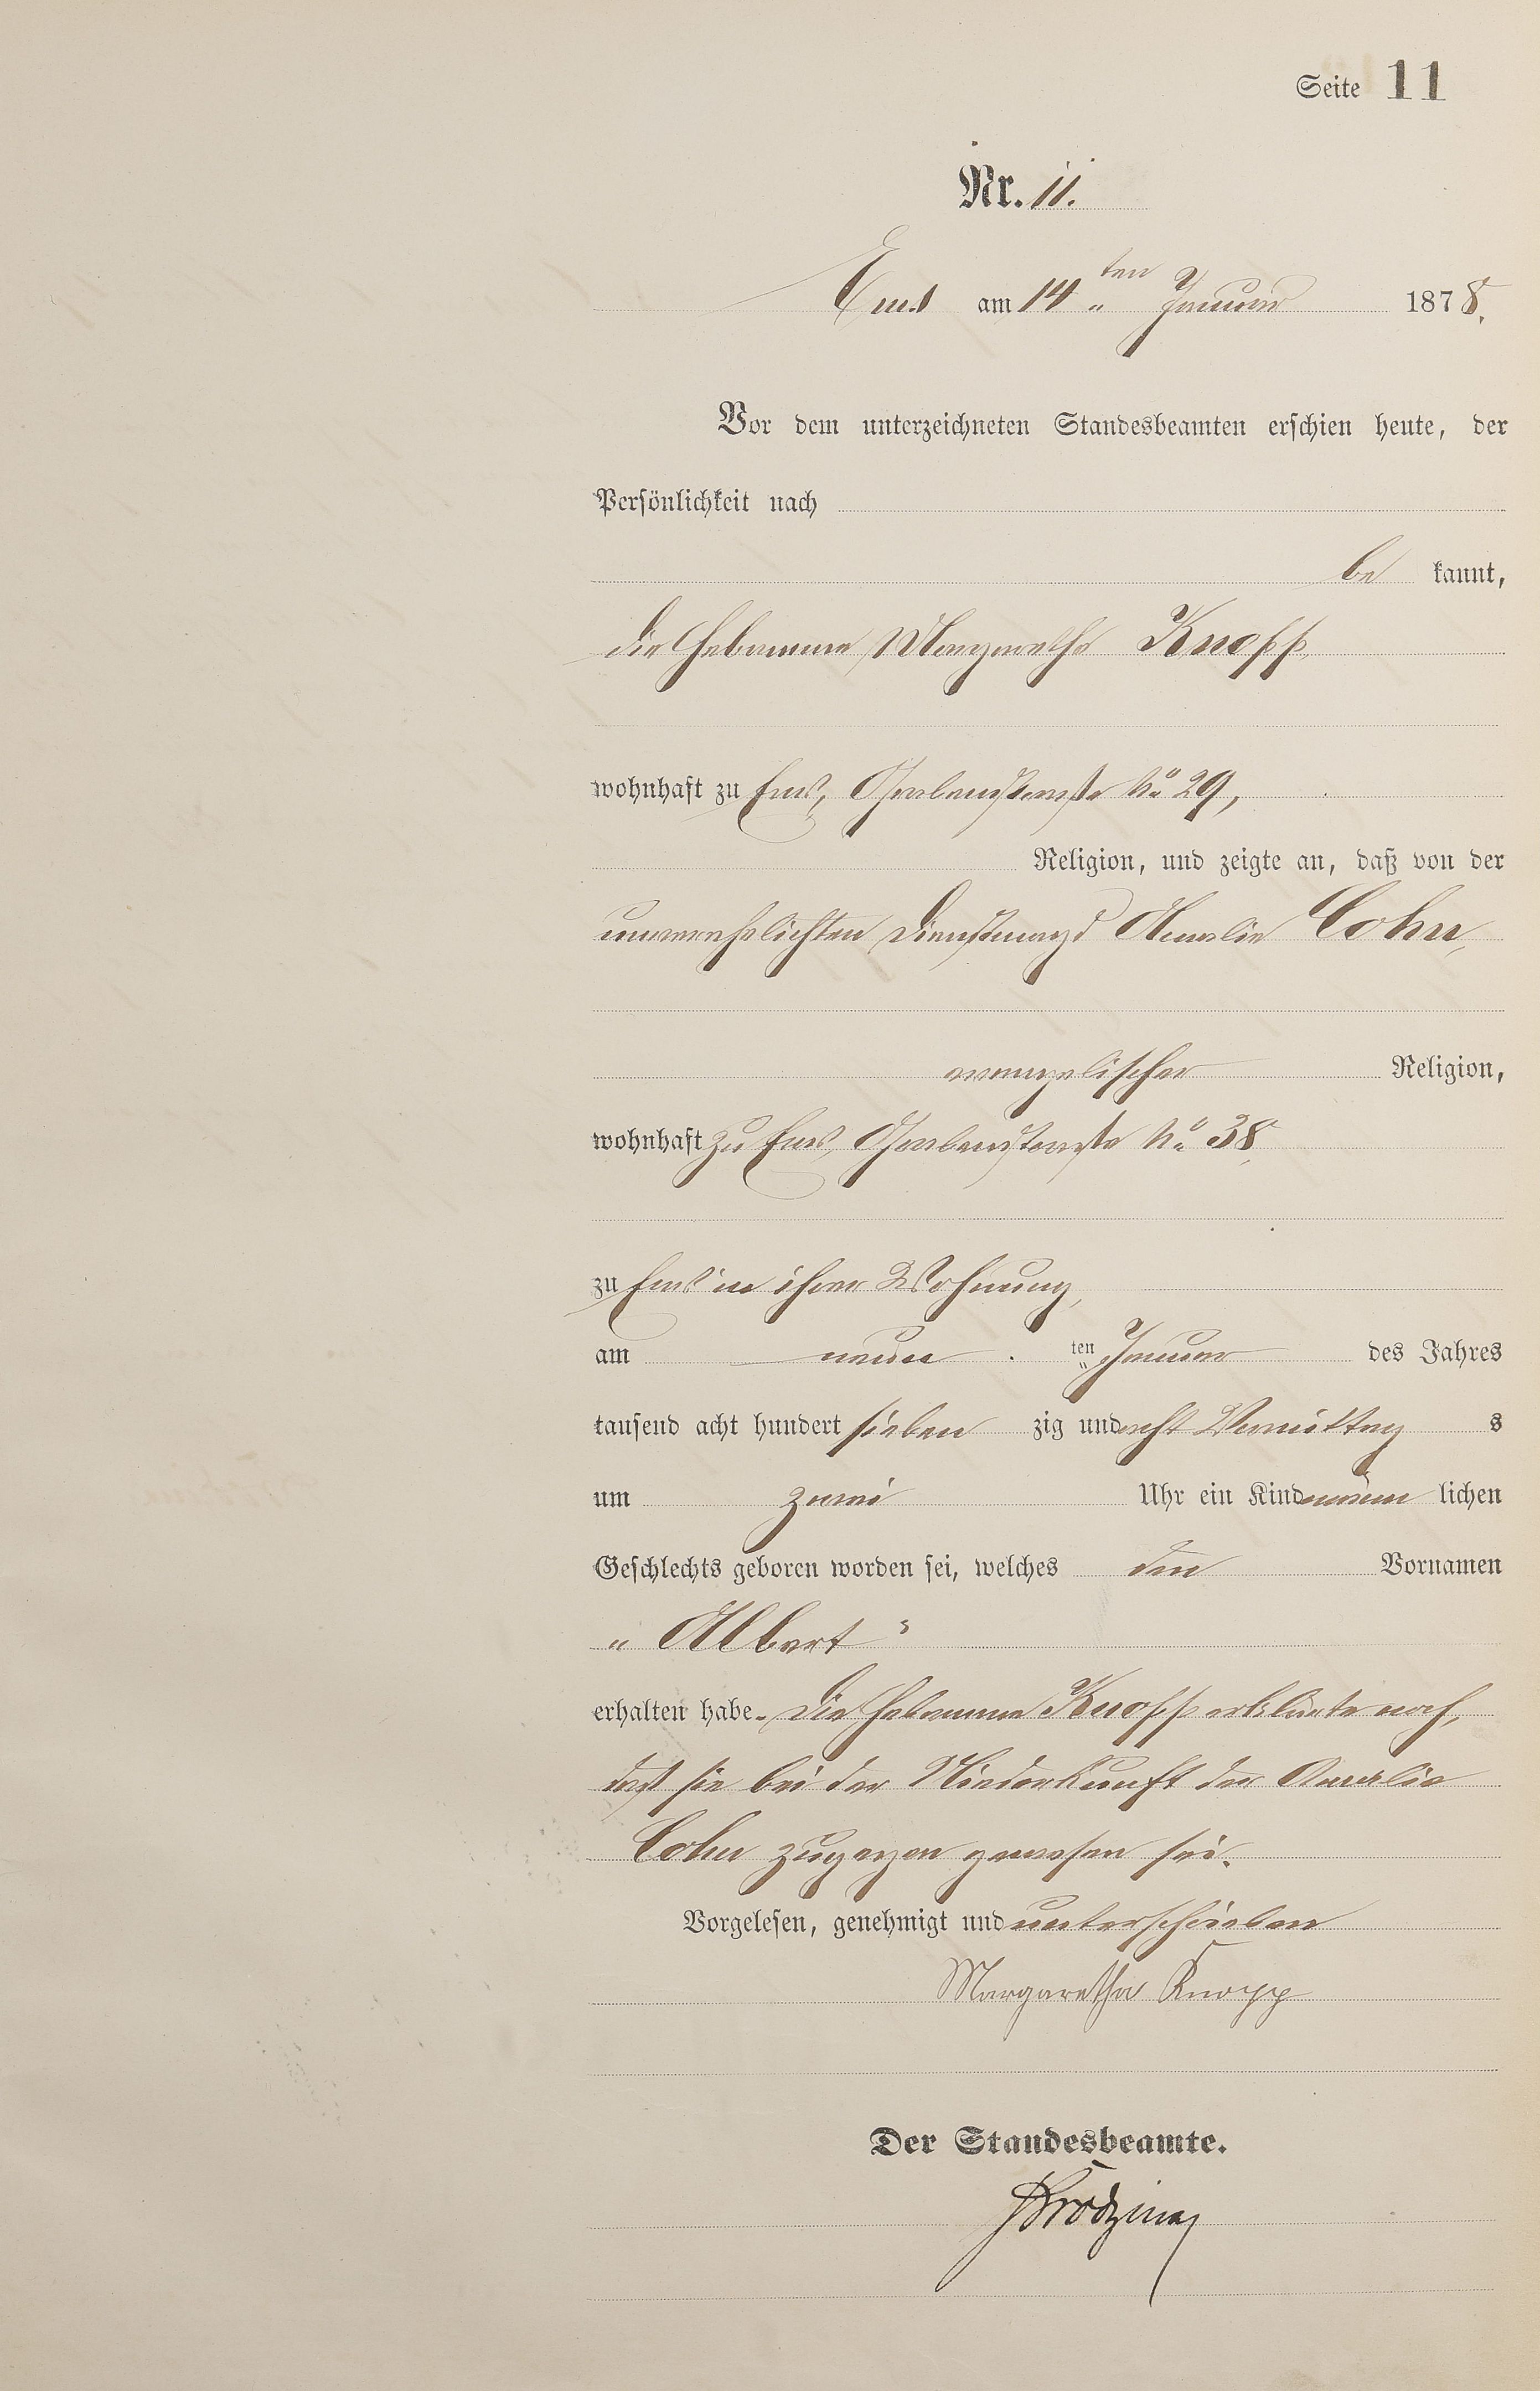 Seite 11
Nr. 11.
Ems am 14 ten Januar 1878.
Vor dem unterzeichneten Standesbeamten erschien heute, der
Persönlichkeit nach
be kannt,
die Hebamme Margaretha Knopp,
wohnhaft zu Ems, Grabenstraße No 29,
Religion, und zeigte an, daß von der
unverehelichten Dienstmagd Amalie Cohn,
evangelischer Religion,
wohnhaft zu Ems, Grabenstraße No 38,
zu Ems in ihrer Wohnung,
am neun ten Januar des Jahres
tausend acht hundert sieben zig und acht Vormittag s
um zwei Uhr ein Kind männ lichen
Geschlechts geboren worden sei, welches den Vornamen
„ Albert "
erhalten habe. Die Hebamme Knopp erklärte noch,
daß sie bei der Niederkunft der Amalie
Cohn zugegen gewesen sei.
Vorgelesen, genehmigt und unterschrieben
Margaretha Knopp
Der Standesbeamte.